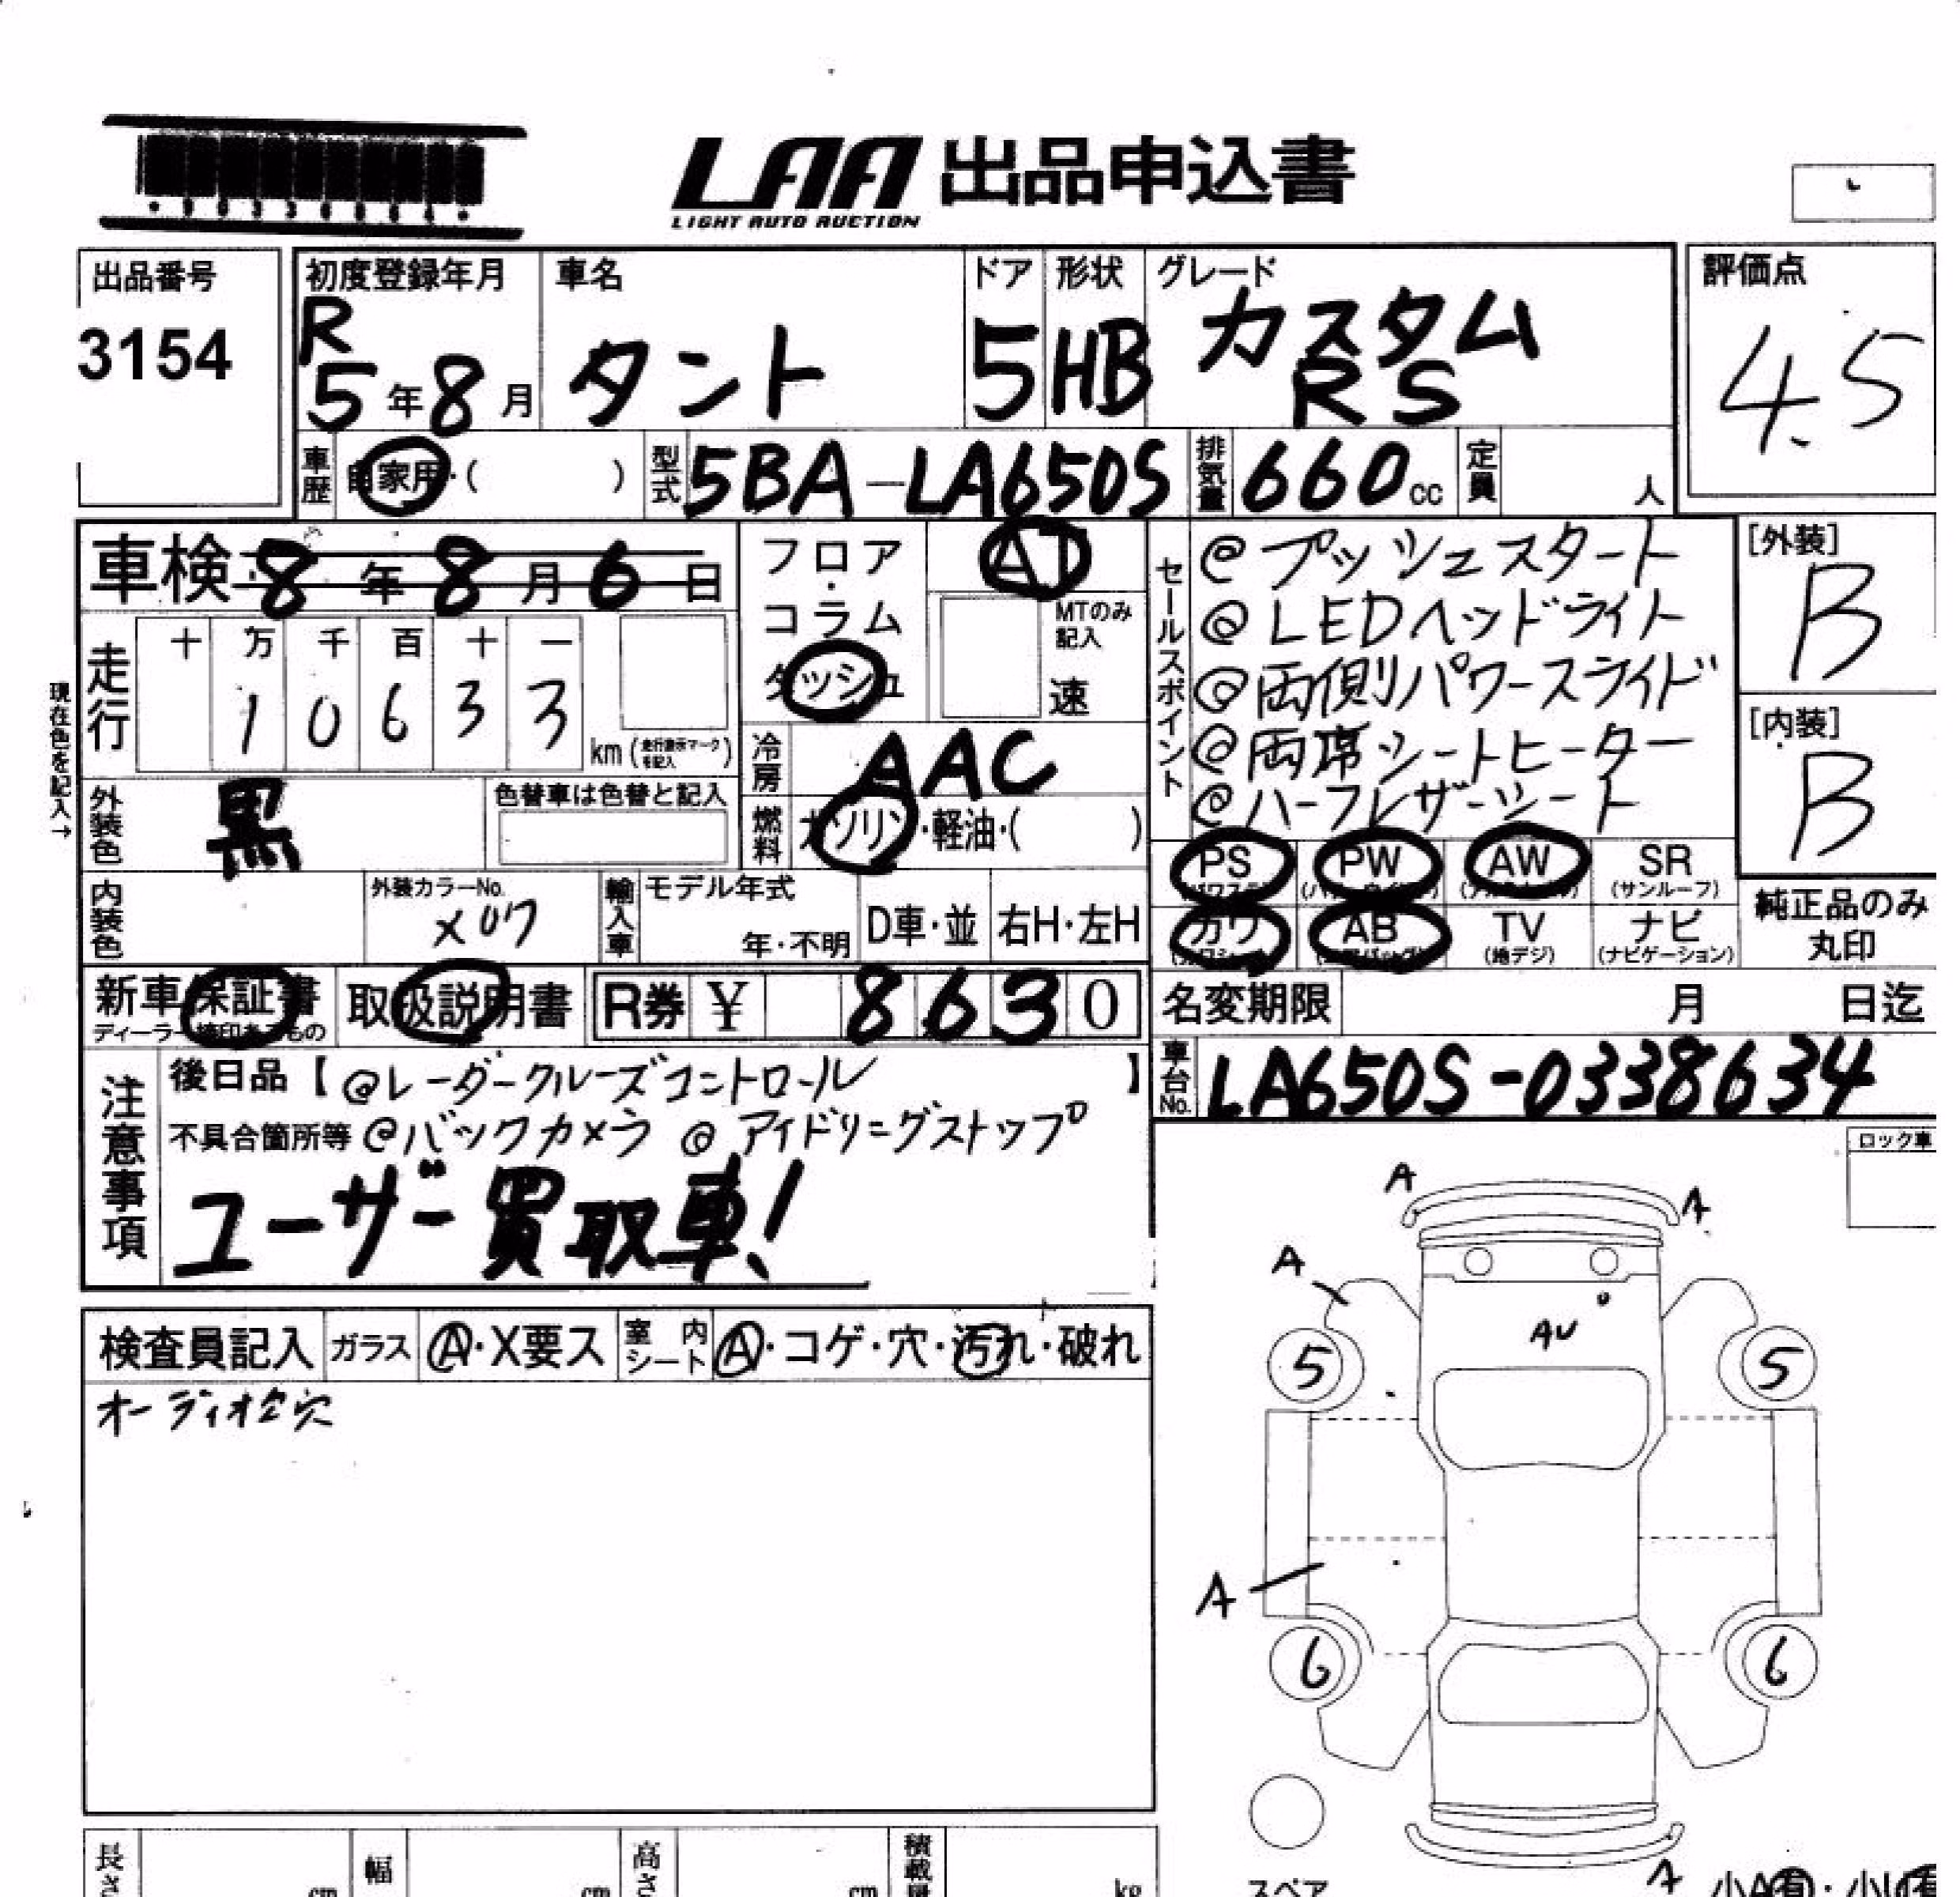 LAA 出品申込書
LIGHT AUTO AUCTION
出品番号
3154
初度登録年月
R
5年8月
車名
タント
ドア
5
形状
HB
グレード
カスタム
RS
評価点
4.5
車歴
自家用・( )
型式
5BA-LA650S
排気量
660cc
定員
人
車検 8年8月6日
フロア・コラム
ダッシュ
AT
MTのみ記入
速
走行
十 万 千 百 十 一
1 0 6 3 3
km (走行表示マークを記入)
現在色を記入→
冷房
AAC
燃料
ガソリン・軽油・( )
外装色
黒
色替車は色替と記入
内装色
外装カラーNo.
X07
輸入車
モデル年式
年・不明
D車・並
右H・左H
新車保証書
取扱説明書
R券 ¥ 8630
セールスポイント
@プッシュスタート
@LEDヘッドライト
@両側パワースライド
@両席シートヒーター
@ハーフレザーシート
[外装]
B
[内装]
B
PS
(パワステ)
PW
AW
SR
(サンルーフ)
カワ
AB
TV
(地デジ)
ナビ
(ナビゲーション)
純正品のみ
丸印
名変期限
月 日迄
車台No.
LA650S-0338634
注意事項
後日品【@レーダークルーズコントロール】
不具合箇所等 @バックカメラ @アイドリングストップ
ユーザー買取車!
検査員記入
ガラス
A・X要ス
室内シート
A・コゲ・穴・汚れ・破れ
オーディオ空穴
ロック車
A
A
A
AU
5
5
A
6
6
スペア
A
小A有・小U有
長さ
cm
幅
cm
高さ
cm
積載量
kg